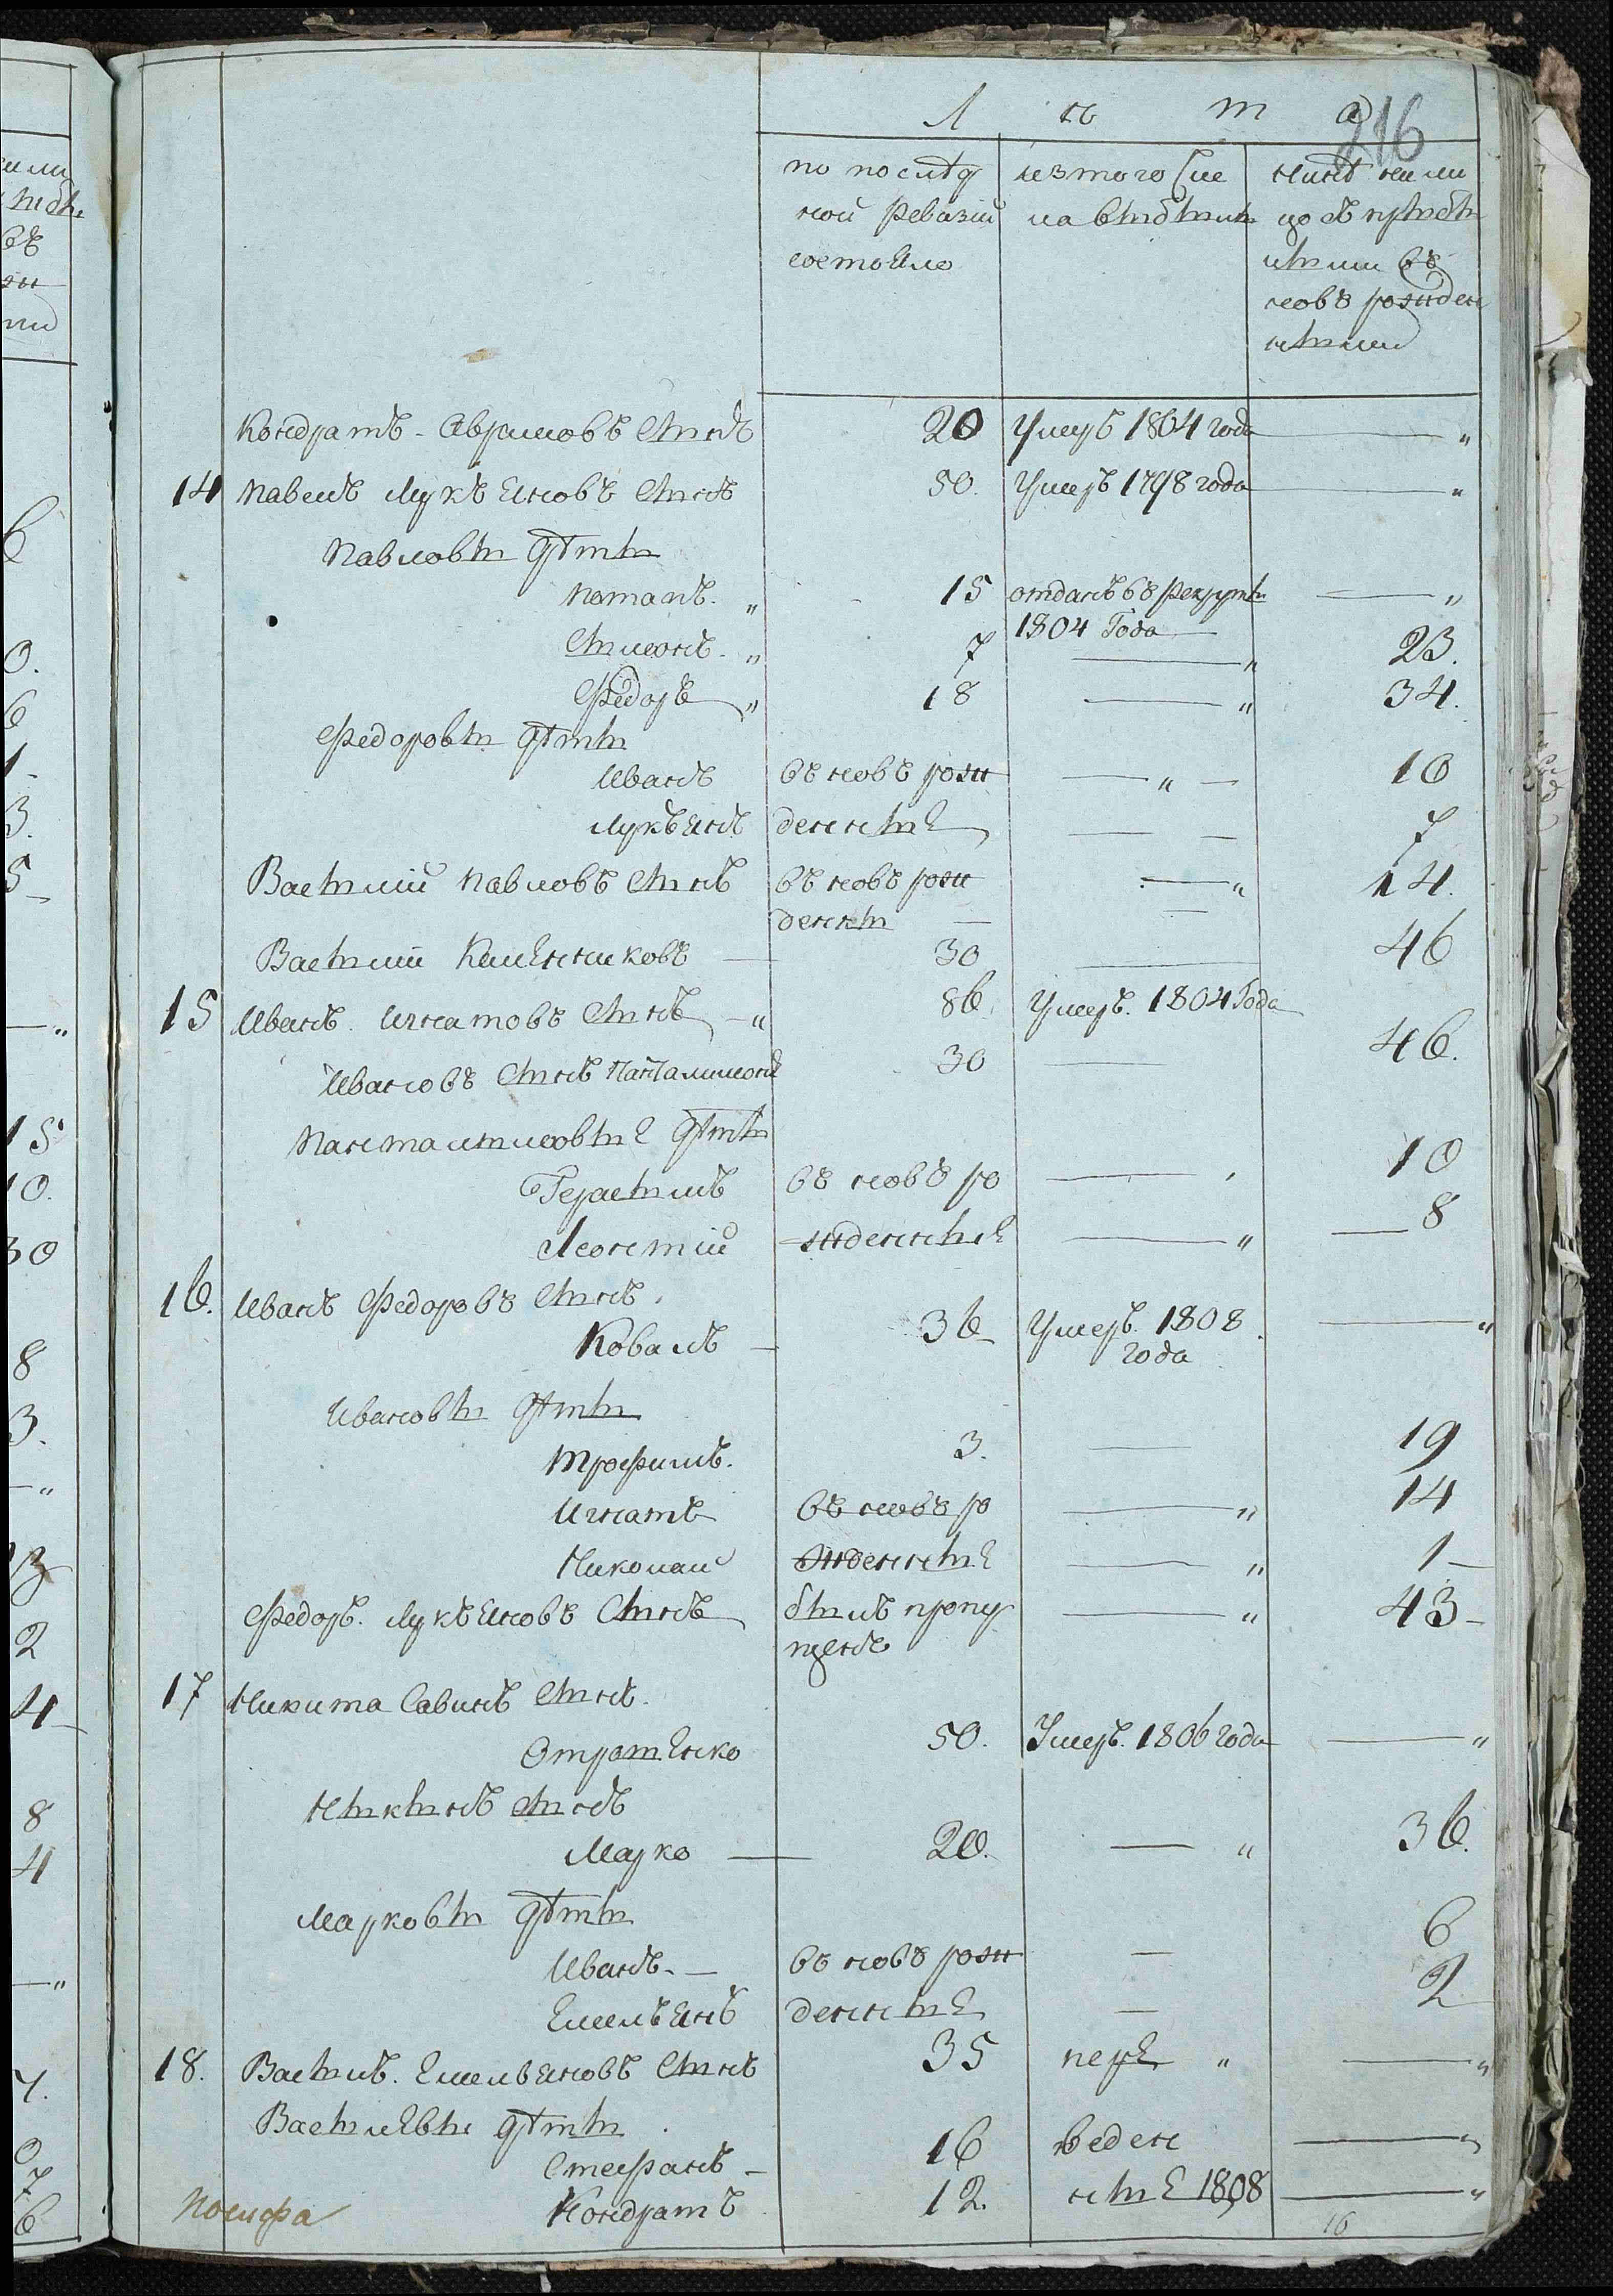 216
Л ѣ т а
по послѣд ной ревизіи состояло
изтого числа выбыли
нынѣ на лицо съ прибылыми въ новѣ рожденными
Кондратъ Авримовъ сынъ 20 Умеръ 1804 года — „
14 Павелъ Лукъяновъ сынъ 50. Умеръ 1798 года — „
Павловы дѣти
Потапъ „ 15 отданъ въ рекруты 1804 Года — „
Сымонъ „ 7 — „ 23.
Федоръ „ 18 — „ 34.
Федоровы дѣти
Иванъ въ новѣ рож — „ — 10
Лукъянъ денные — — 7
Василій Павловъ сынъ въ новѣ рож — „ 14.
денны — —
Василій — 30 — 46
15 Иванъ Игнатовъ сынъ — „ 86. Умеръ 1804 Года
Ивановъ сынъ Панталимонъ 30 — 46.
Панталимоовые дѣти
Герасимъ въ новѣ ро — „ 10
Леонтій жденные — „ — 8
16. Иванъ Федоровъ сынъ
Ковалъ — 36 Умеръ 1808 года — „
Ивановы дѣти
Трофимъ. 3. — 19
Игнатъ въ новѣ ро — „ 14
Николай жденные — „ 1 —
Федоръ Лукъяновъ сынъ былъ пропущенъ — „ 43 —
17 Никита Савинъ сынъ.
50. Умеръ 1806 года — „
Никинъ сынъ
Марко — 20. — „ 36.
Марковы дѣти
Иванъ — въ новѣ рож — 6
Емельянъ денные — 2
18. Василь Емельяновъ сынъ 35 пере „ — „
Василевы дѣти
Стефанъ — 16 веден — „
Кондратъ 12. ные 1808 — „
16